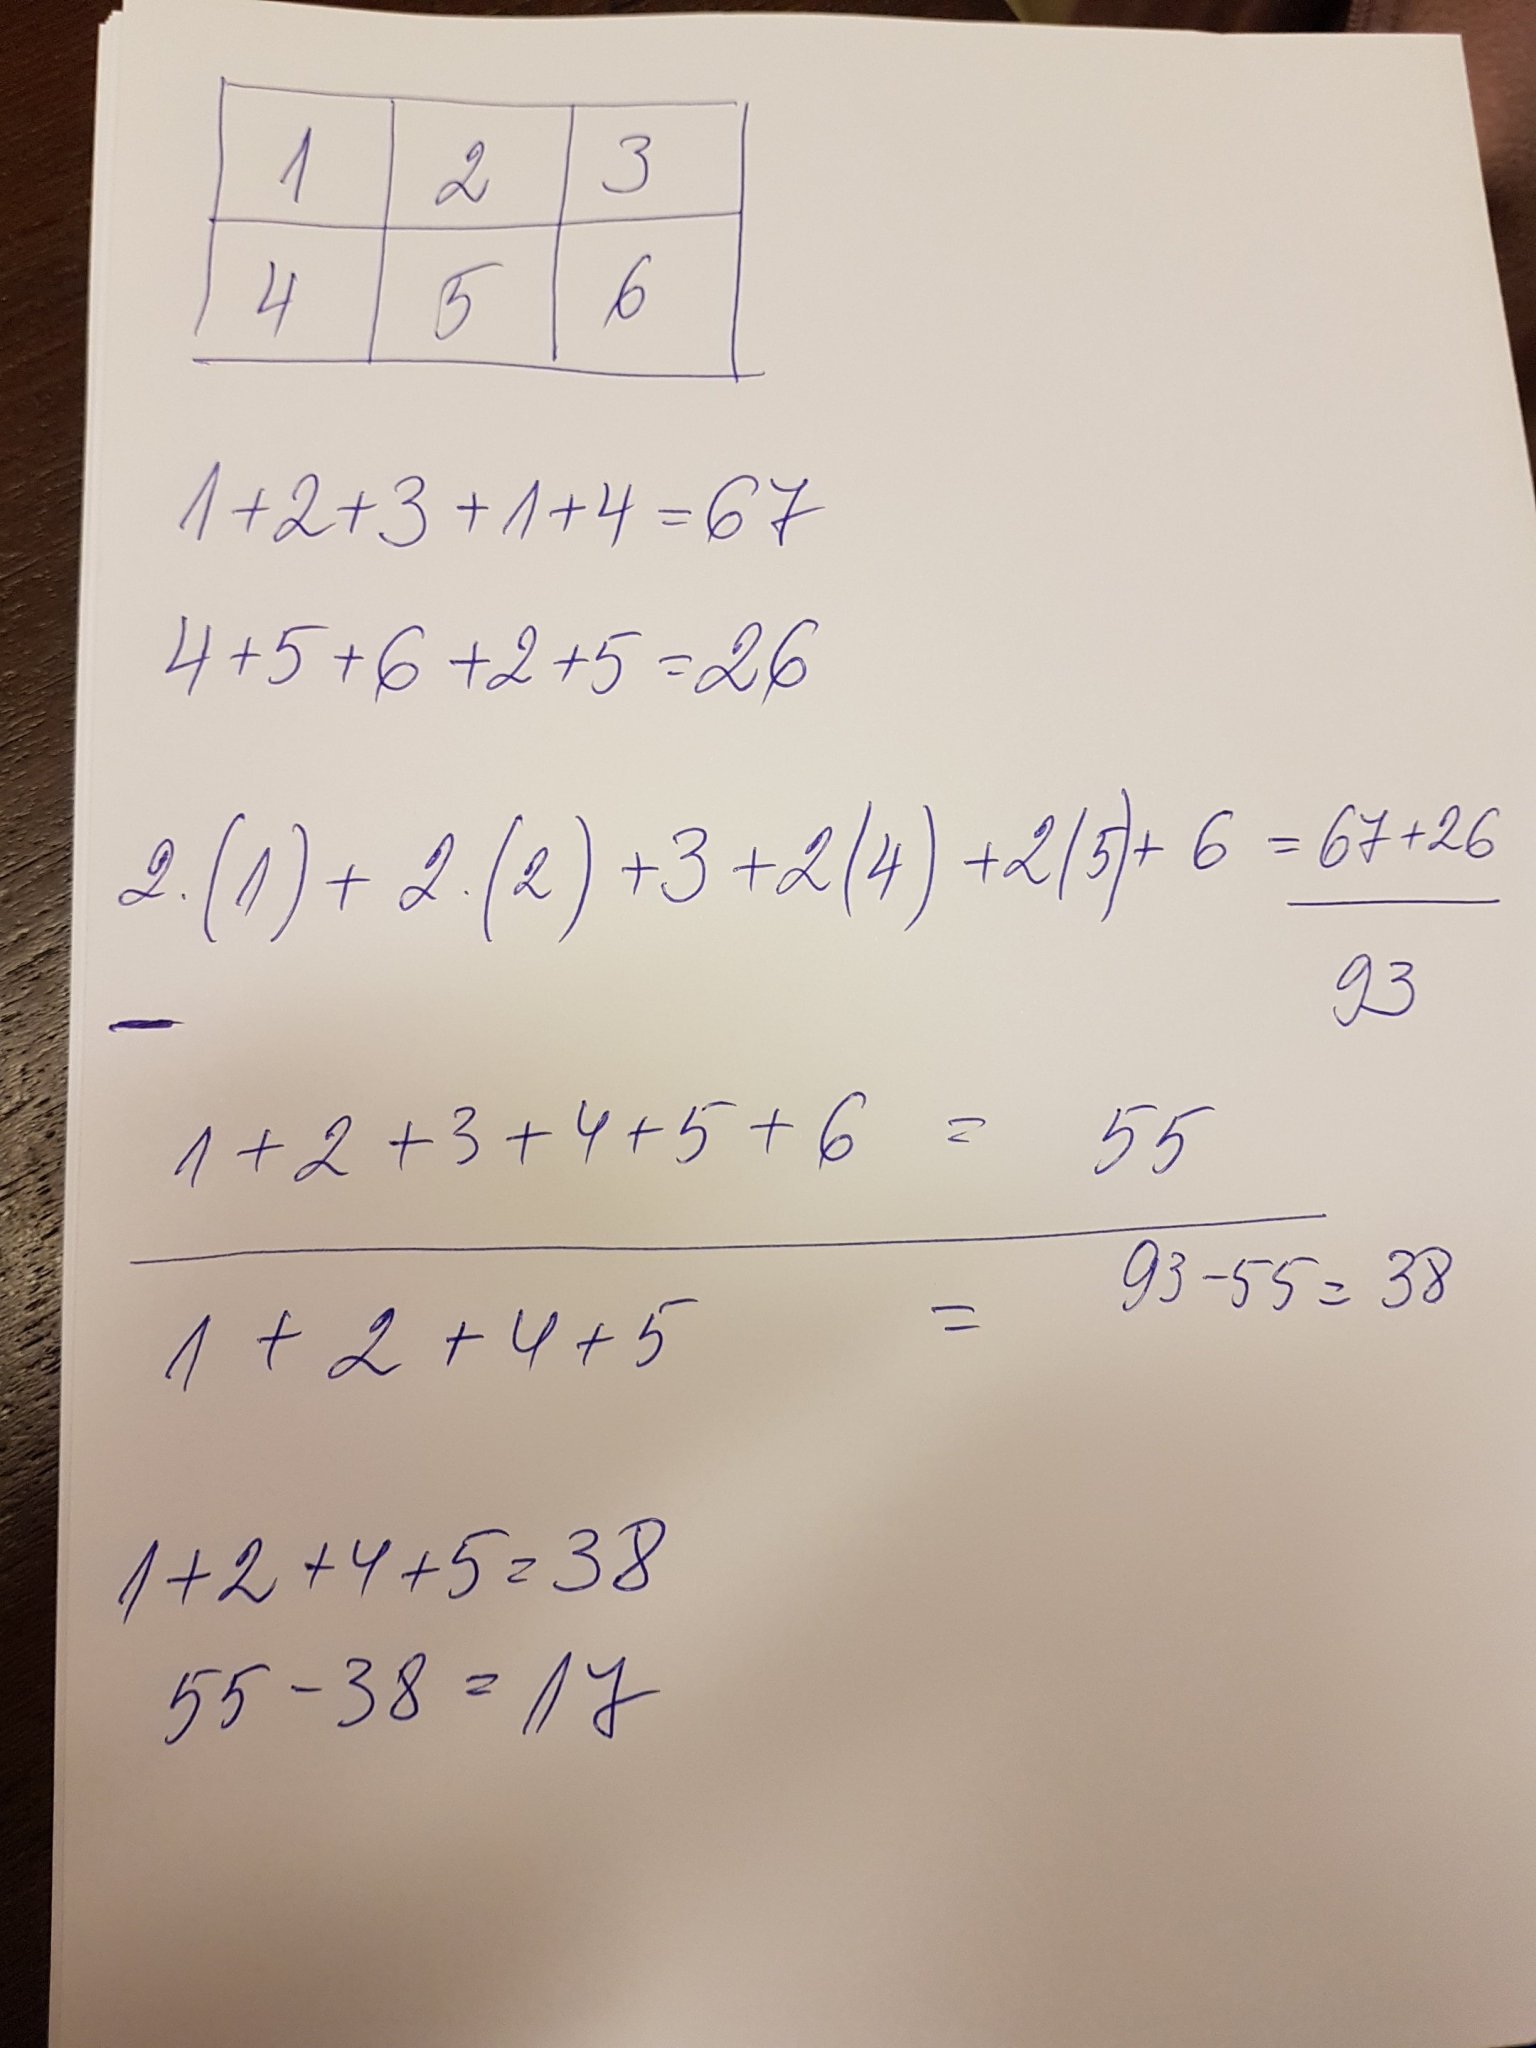 1 2 3
4 5 6
1+2+3+1+4=67
4+5+6+2+5=26
2·(1)+2·(2)+3+2(4)+2(5)+6=67+26
93
–
1+2+3+4+5+6 = 55
1+2+4+5 = 93-55=38
1+2+4+5=38
55-38=17